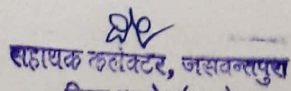 सहायक कलेक्टर, जसवन्तपुरा